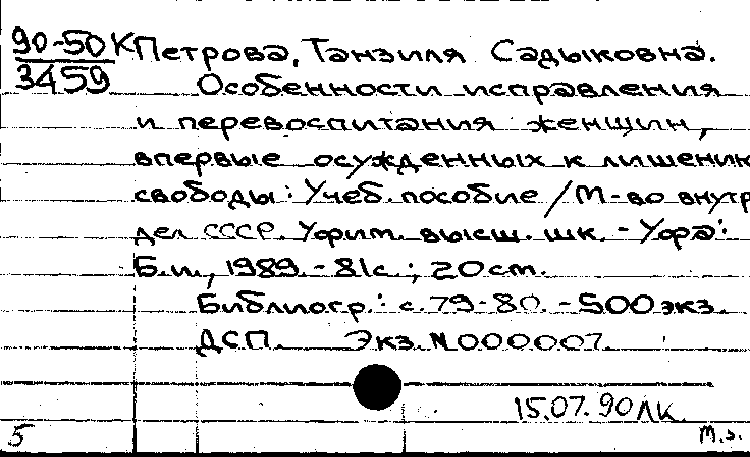 90-50К Петрова, Танзиля Садыковна.
3459 Особенности исправления
и перевоспитания женщин,
впервые осужденных к лишению
свободы: Учеб. пособие / М-во внутр
дел СССР. Уфим. высш. шк. - Уфа:
Б.и., 1989. - 81с.; 20см.
Библиогр.: с. 79-80. - 500 экз.
ДСП. Экз. N 000007.
15.07.90 ЛК
5